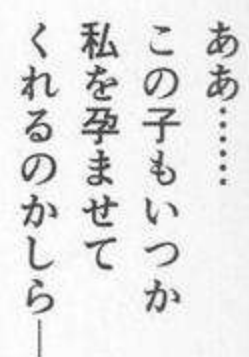 ああ……
この子もいつか
私を孕ませて
くれるのかしら―